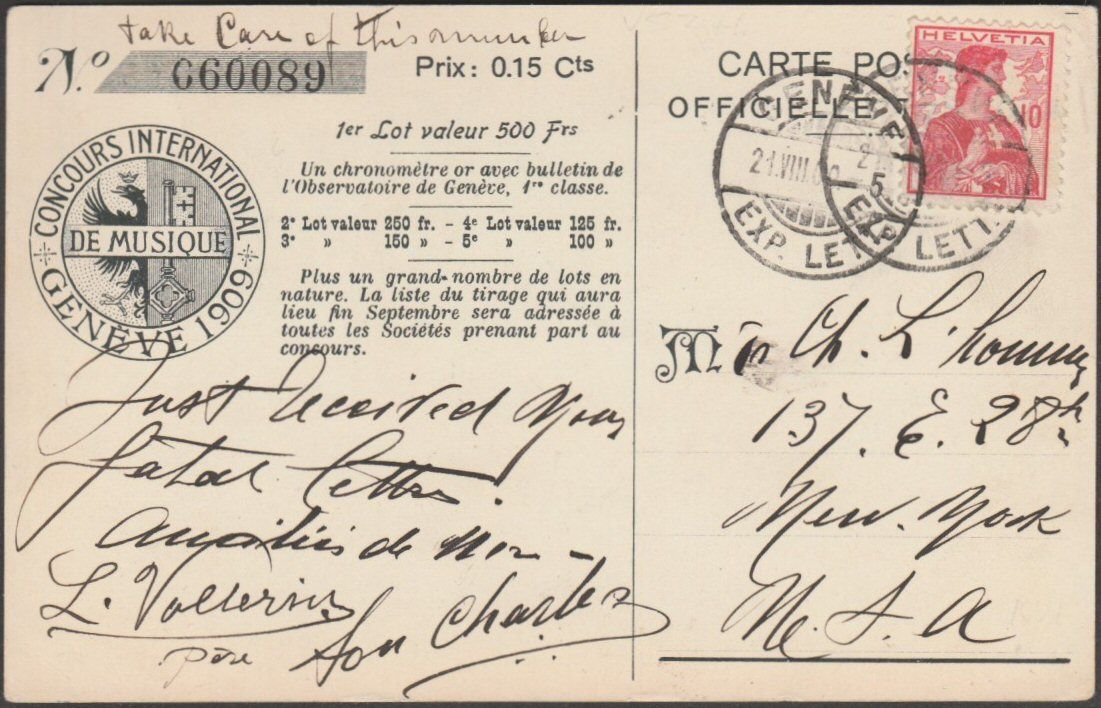 take Care of this number
No 060089
Prix: 0.15 Cts
CONCOURS INTERNATIONAL
DE MUSIQUE
GENÈVE 1909
1er Lot valeur 500 Frs
Un chronomètre or avec bulletin de
l'Observatoire de Genève, 1re classe.
2e Lot valeur 250 fr. - 4e Lot valeur 125 fr.
3e » 150 » - 5e » 100 »
Plus un grand nombre de lots en
nature. La liste du tirage qui aura
lieu fin Septembre sera adressée à
toutes les Sociétés prenant part au
concours.
Just received your
fatal lettre.
amitiés de mon
L. Vollerin
père
son Charles
CARTE POS
OFFICIELLE
HELVETIA
10
GENÈVE
21.VIII.09
EXP. LETT.
5
EXP. LETT.
M r Ch. L'homme
137. E. 28th
New. York
U. S. A